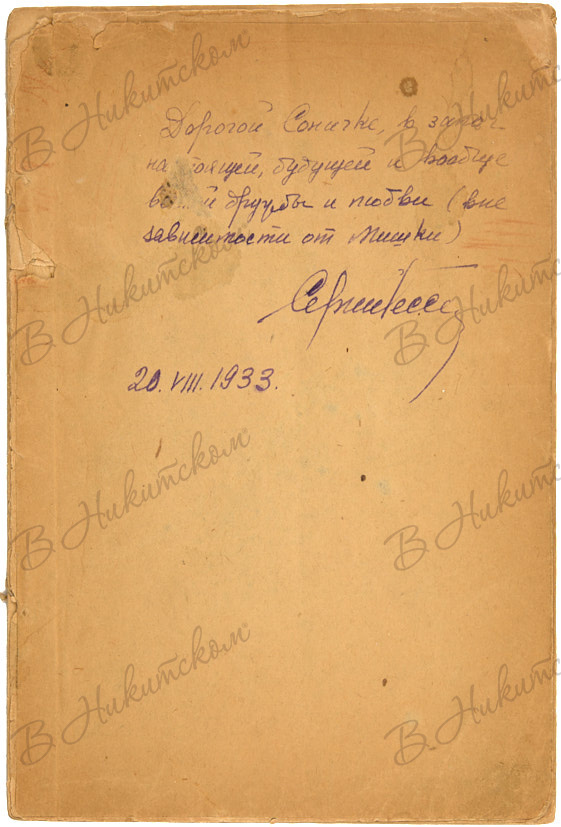 Дорогой Соничке, в зало-
на ...оящей, будущей и вообще
в... й дружбы и любви (вне
зависимости от Мишки)
20.VIII.1933.
В Никитском
В Никитском
В Никитском
В Никитском
В Никитском
В Никитском
В Никитском
В Никитском